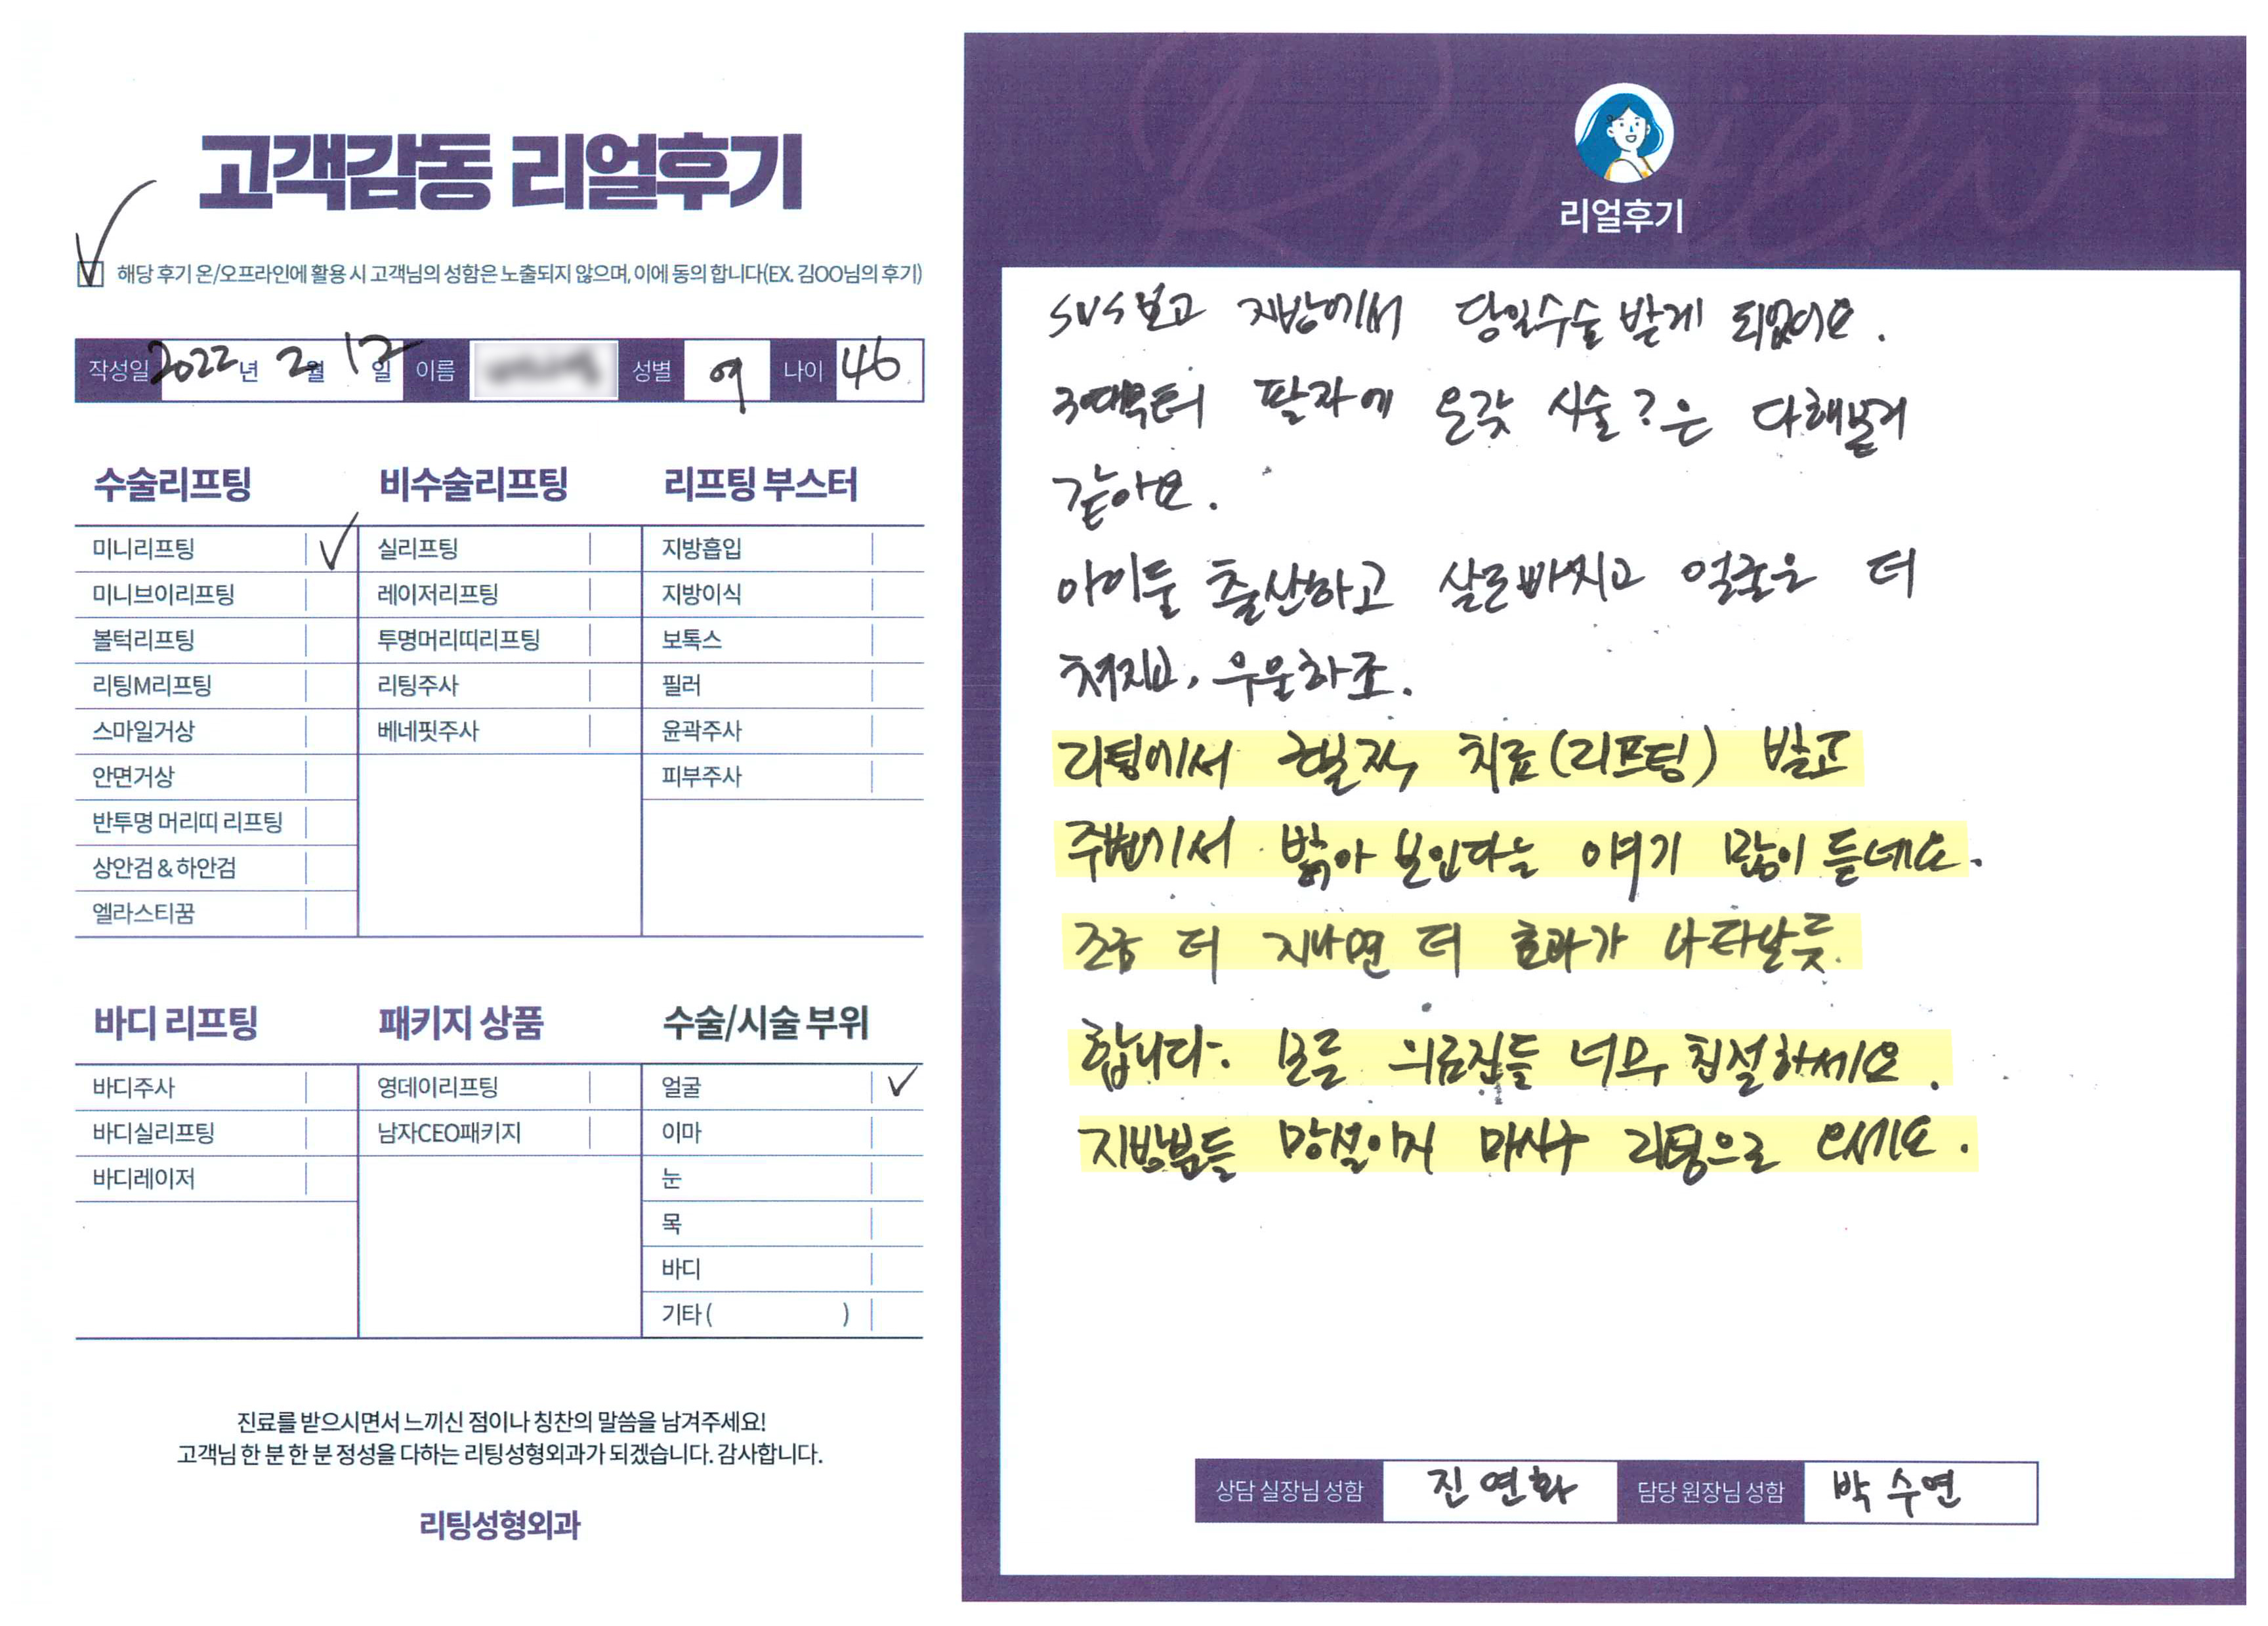 고객감동 리얼후기
해당 후기 온/오프라인에 활용 시 고객님의 성함은 노출되지 않으며, 이에 동의 합니다(EX. 김OO님의 후기)
작성일 2022년 2월 12일 이름 성별 여 나이 46
수술리프팅
미니리프팅
미니브이리프팅
볼턱리프팅
리팅M리프팅
스마일거상
안면거상
반투명 머리띠 리프팅
상안검 & 하안검
엘라스티꿈
비수술리프팅
실리프팅
레이저리프팅
투명머리띠리프팅
리팅주사
베네핏주사
리프팅 부스터
지방흡입
지방이식
보톡스
필러
윤곽주사
피부주사
바디 리프팅
바디주사
바디실리프팅
바디레이저
패키지 상품
영데이리프팅
남자CEO패키지
수술/시술 부위
얼굴
이마
눈
목
바디
기타 ( )
진료를 받으시면서 느끼신 점이나 칭찬의 말씀을 남겨주세요!
고객님 한 분 한 분 정성을 다하는 리팅성형외과가 되겠습니다. 감사합니다.
리팅성형외과
Review
리얼후기
SVS보고 지방에서 당일수술 받게 되었어요.
3대부터 팔자에 온갖 시술?은 다해본거
같아요.
아이둘 출산하고 살은빠지고 얼굴은 더
쳐지고, 우울하죠.
리팅에서 치료(리프팅) 받고
주변에서 밝아 보인다는 이야기 많이 듣네요.
조금 더 지나면 더 효과가 나타날듯.
합니다. 모든 의료진들 너무 친절하세요.
지방분들 망설이지 마시구 리팅으로 오세요.
상담 실장님 성함 진연화 담당 원장님 성함 박수연